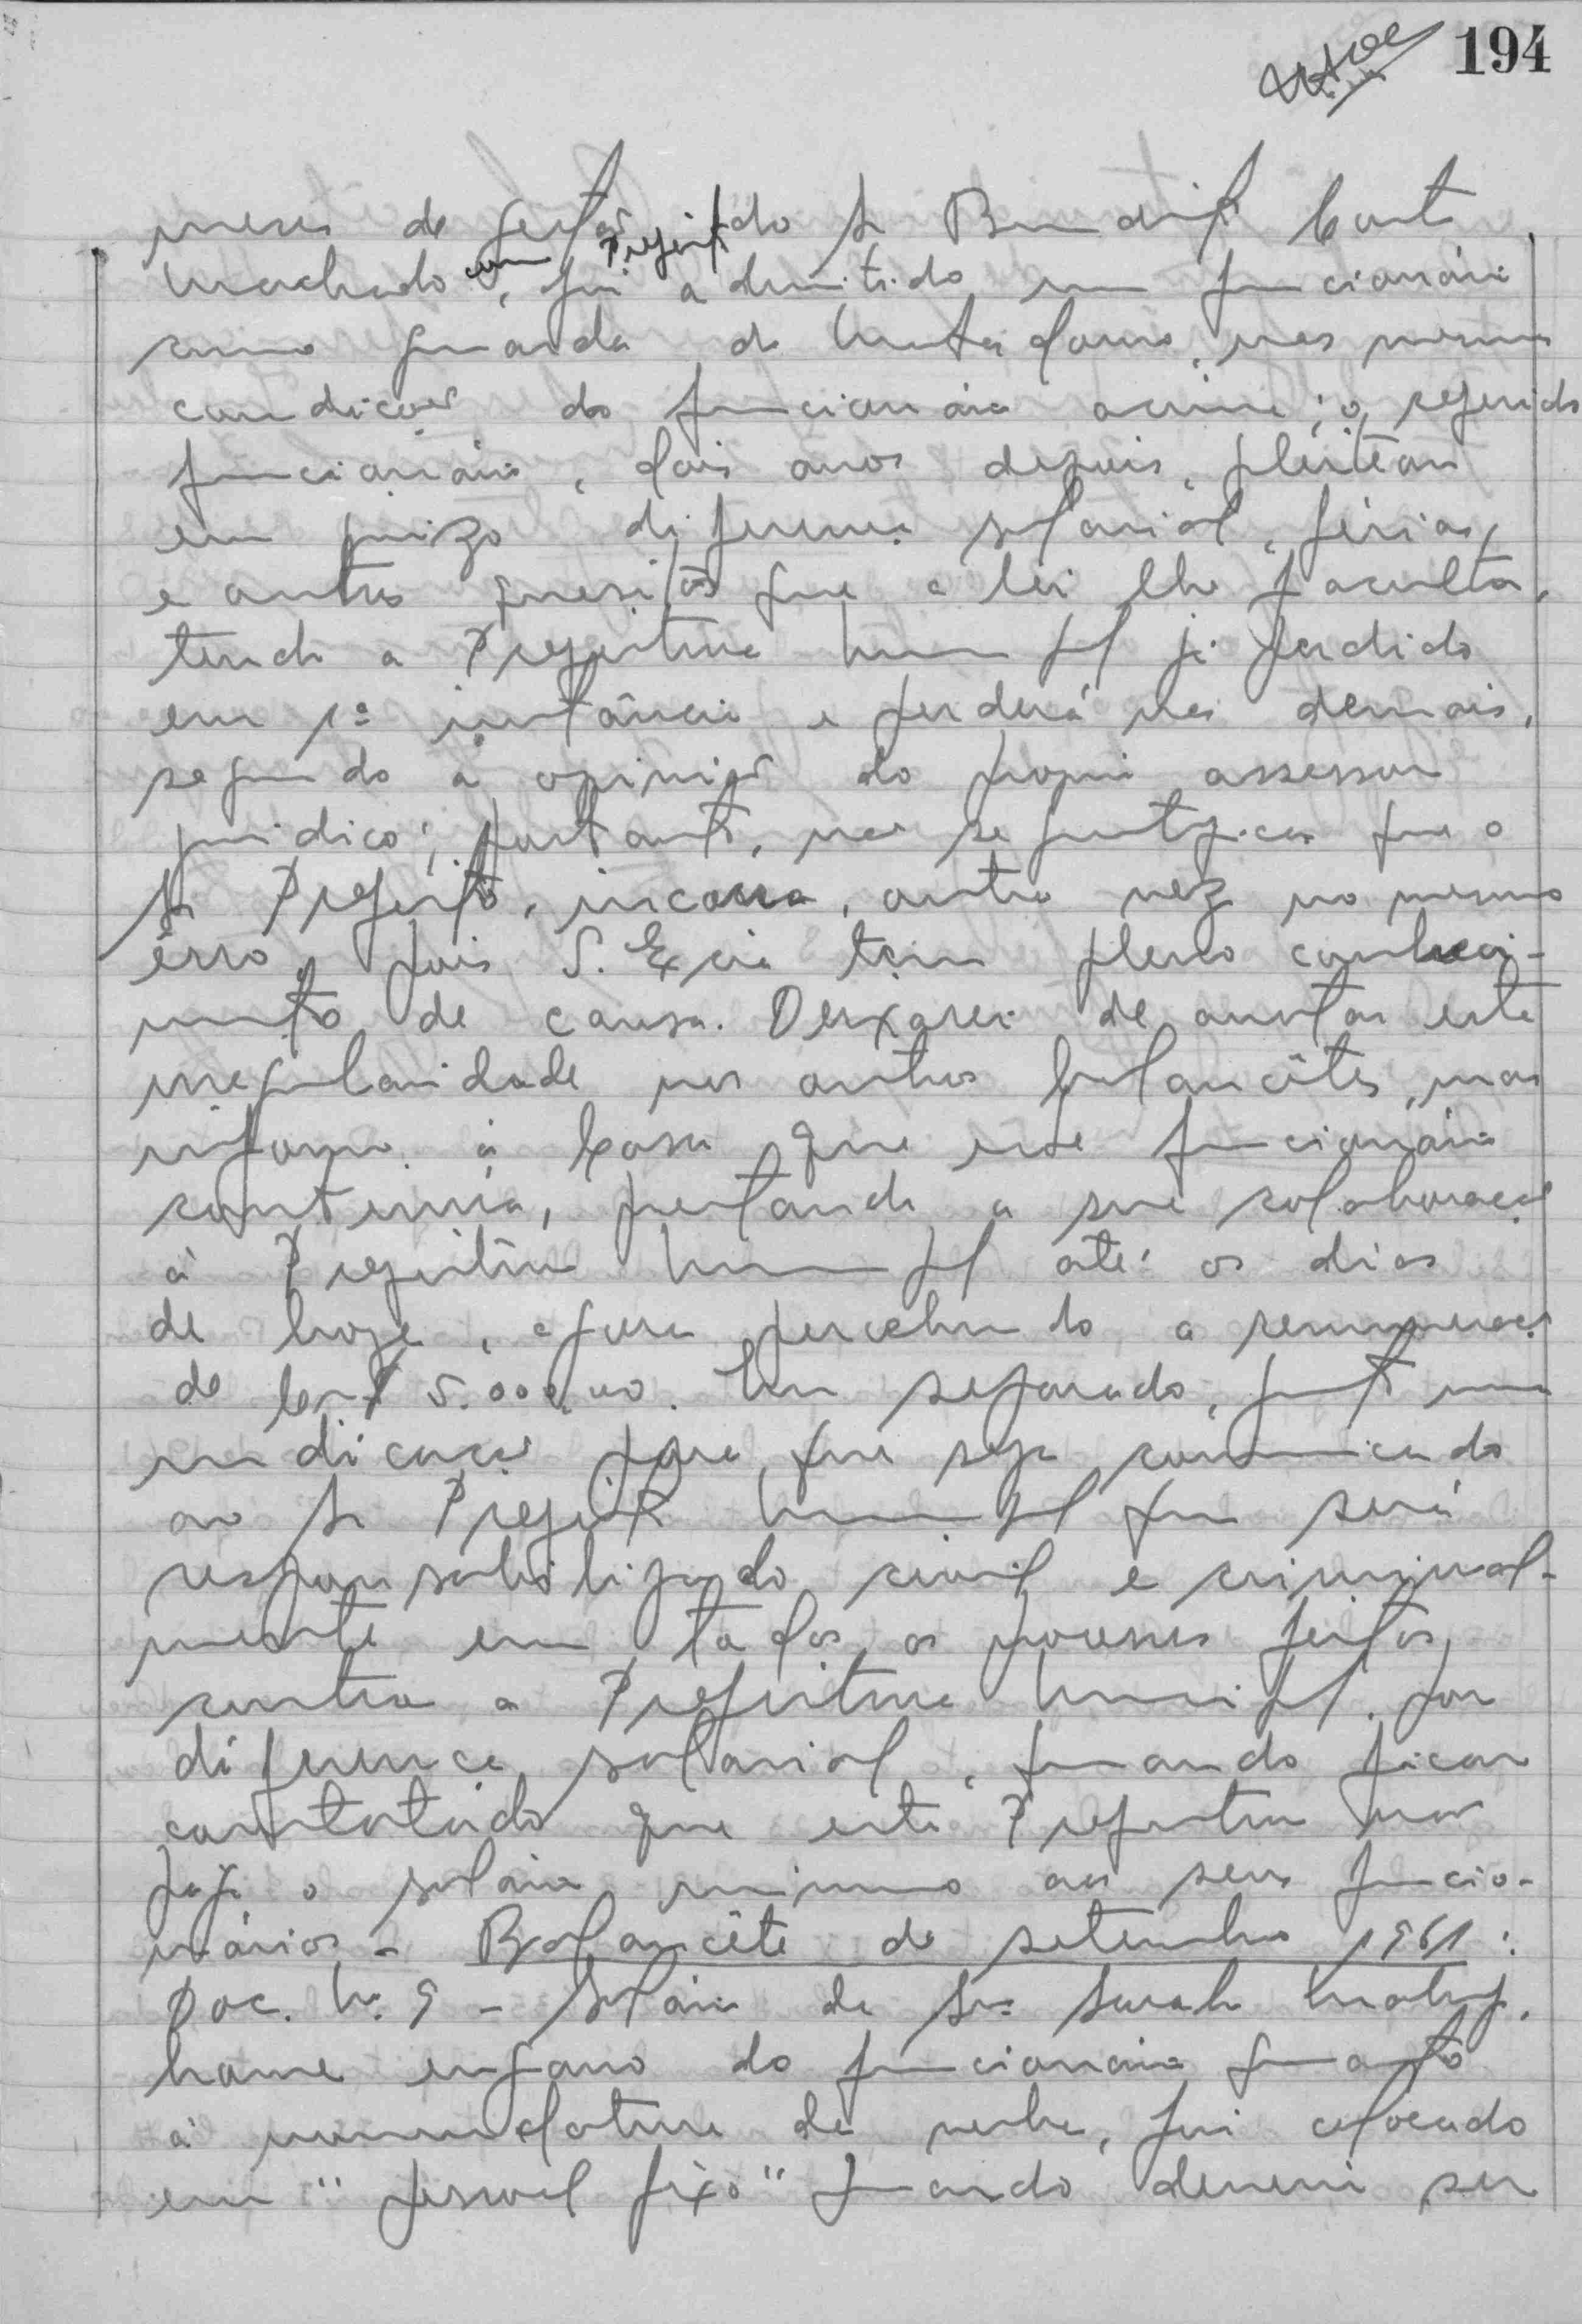 194
meses de gestão do Sr Benedito Cout
como Prefeito
Machado, foi admitido um funcionário
como guarda do Matadouro, nas mesmas
condições do funcionário acima; o referido
funcionário, dois anos depois, pleiteou
em juizo diferença salarial, férias,
e outros quesitos que a lei lhe faculta,
tendo a Prefeitura Municipal já perdido
em 1ª instância e perderá nas demais,
segundo a opinião do proprio assessor
juridico; portanto, não se justifica que o
Sr Prefeito, incorra, outra vez no mesmo
êrro, pois S. Excia tem pleno conheci-
mento de causa. Deixarei de anotar esta
irregularidade nos outros balancêtes, mas
informo à Casa que esse funcionário
continúa, prestando a sua colaboração
à Prefeitura Municipal até os dias
de hoje, agora percebendo a remuneração
de Cr$ 5.000,00. Em separado, junto uma
indicação para que seja comunicado
ao Sr Prefeito Municipal que será
responsabilizado civil e criminal-
mente em todos os processos feitos
contra a Prefeitura Municipal, por
diferença salarial, quando ficar
constatado que esta Prefeitura não
paga o salário minimo aos seus funcio-
nários - Balancête de setembro 1961:
Doc. Nº 9 - Salário da Srª Sarah
houve engano do funcionário quanto
à nomenclatura da verba, foi colocado
em "pessoal fixo" quando deveria ser